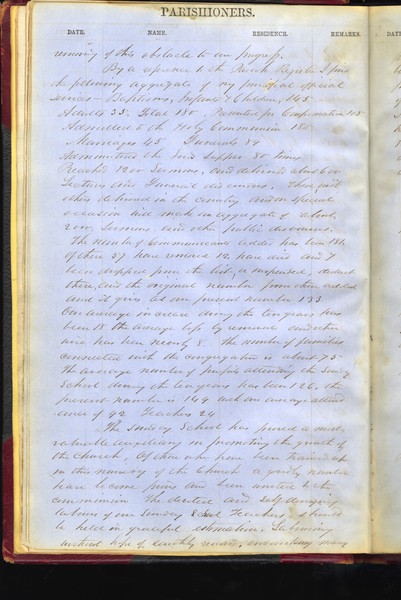 PARISHIONERS.
DATE. NAME. RESIDENCE. REMARKS. DAT
removing of this obstacle to our progress.
By a reference to the Parish Register I find
the following aggregate of my principal official
services — Baptisms, Infants & Children, 145
Adults 35. Total 180. Presented for Confirmation 115
Admitted to the Holy Communion 180
Marriages 45 Funerals 89
Administered the Lord's Supper 80 times
Preached 1200 Sermons, and delivered about 600
Lectures and Funeral discourses. These with
others delivered in the country and on special
occasion will make an aggregate of about
2000 Sermons and other public discourses.
The number of Communicants added has been 180
of these 37 have removed 12 have died and 7
been dropped from the list, or suspended, deduct
these, and the original number from those added
and it gives as our present number 133
Our average increase during the ten years has
been 18 the average loss by removal and other
wise has been nearly 8. The number of families
connected with the congregation is about 75
The average number of pupils attending the Sunday
School during the ten years has been 126. the
present number is 149 with an average attend
ance of 92 Teachers 24
The Sunday School has proved a most
valuable auxiliary in promoting the growth of
the Church. Of those who have been trained up
in this nursery of the Church a goodly number
have become pious and been united to the
communion. The devoted and self denying
labours of our Sunday School Teachers should
be held in grateful estimation. Labouring
without hope of earthly reward, encountering many